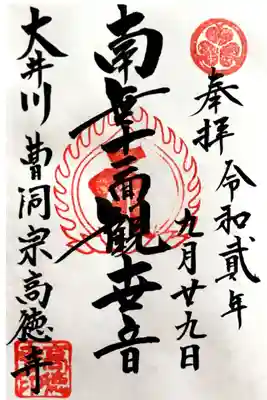 奉拝 令和貳年
九月廿九日
南無十一面観世音
大井川 曹洞宗 高徳寺